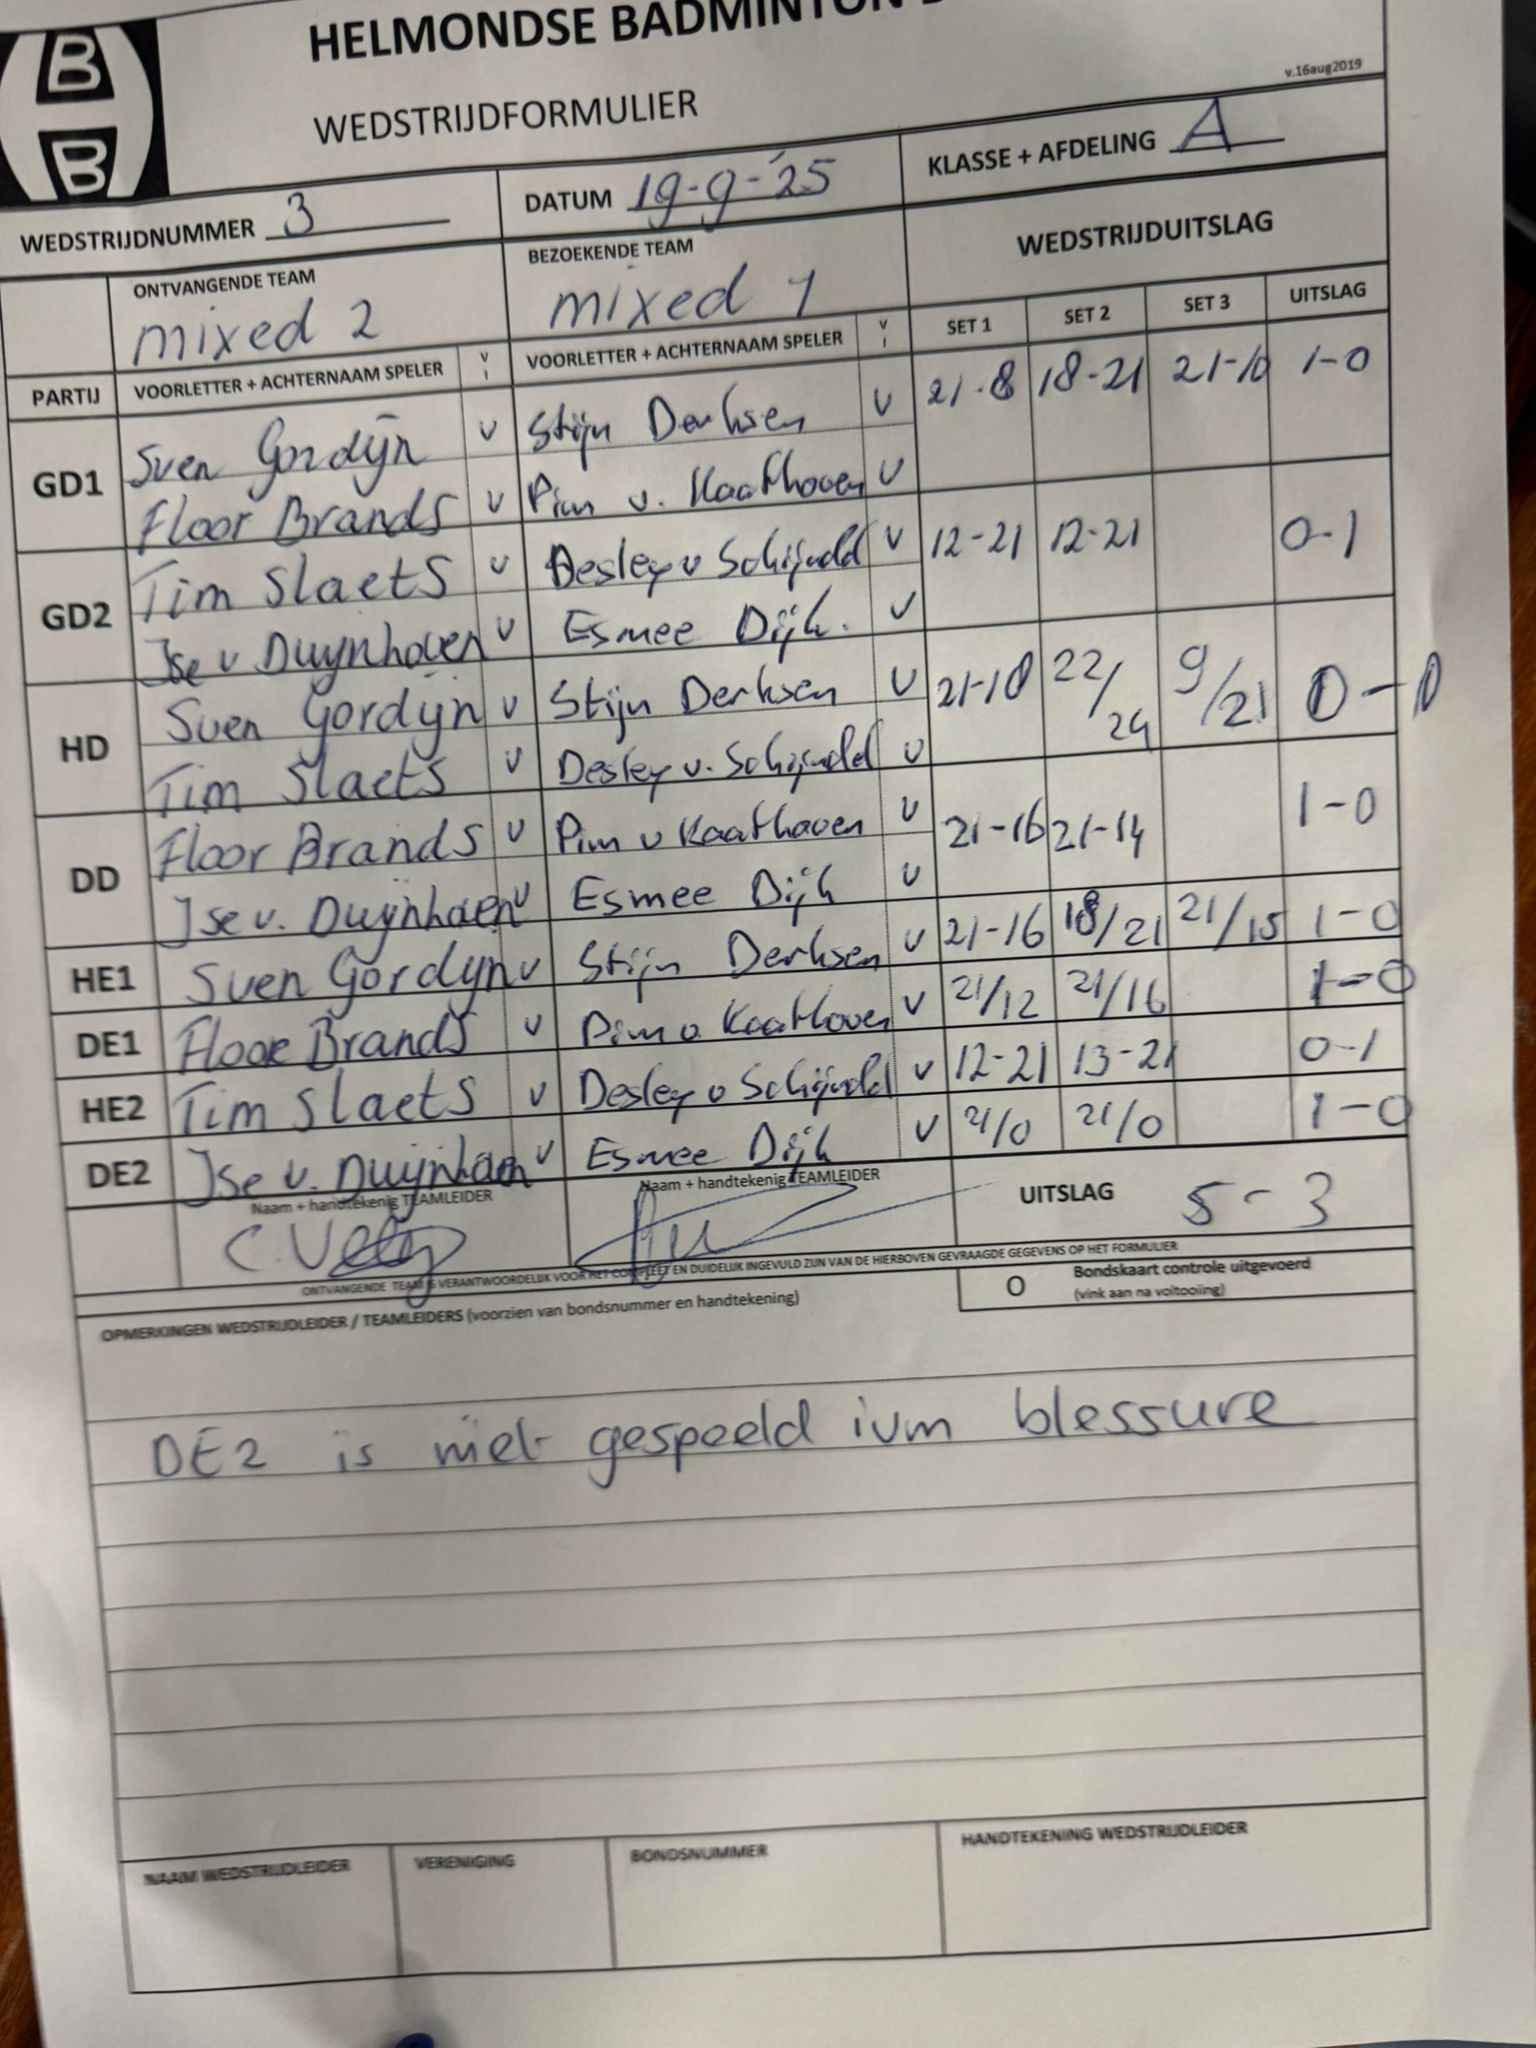 HELMONDSE BADMINTON
v.16aug2019
WEDSTRIJDFORMULIER
WEDSTRIJDNUMMER 3 DATUM 19-9-'25 KLASSE + AFDELING A
ONTVANGENDE TEAM BEZOEKENDE TEAM WEDSTRIJDUITSLAG
mixed 2 mixed 1
PARTIJ VOORLETTER + ACHTERNAAM SPELER V I VOORLETTER + ACHTERNAAM SPELER V I SET 1 SET 2 SET 3 UITSLAG
GD1 Sven Gordijn v Stijn Derksen v 21-8 18-21 21-10 1-0
Floor Brands v Pim v. Kaathoven v
GD2 Tim Slaets v Desley v Schijndel v 12-21 12-21 0-1
Ise v Duijnhoven v Esmee Dijk. v
HD Sven Gordijn v Stijn Derksen v 21-18 22/24 9/21
Tim Slaets v Desley v. Schijndel v
DD Floor Brands v Pim v Kaathoven v 21-16 21-14 1-0
Ise v. Duijnhoen v Esmee Dijk v
HE1 Sven Gordijn v Stijn Derksen v 21-16 18/21 21/15 1-0
DE1 Floor Brands v Pim v Kaathoven v 21/12 21/16 1-0
HE2 Tim Slaets v Desley v Schijndel v 12-21 13-21 0-1
DE2 Ise v. Duijnhoen v Esmee Dijk v 21/0 21/0 1-0
Naam + handtekenig TEAMLEIDER Naam + handtekenig TEAMLEIDER UITSLAG 5-3
ONTVANGENDE TEAM IS VERANTWOORDELIJK VOOR HET COMPLEET EN DUIDELIJK INGEVULD ZIJN VAN DE HIERBOVEN GEVRAAGDE GEGEVENS OP HET FORMULIER
O Bondskaart controle uitgevoerd
(vink aan na voltooiing)
OPMERKINGEN WEDSTRIJDLEIDER / TEAMLEIDERS (voorzien van bondsnummer en handtekening)
DE2 is niet gespeeld ivm blessure
NAAM WEDSTRIJDLEIDER VERENIGING BONDSNUMMER HANDTEKENING WEDSTRIJDLEIDER